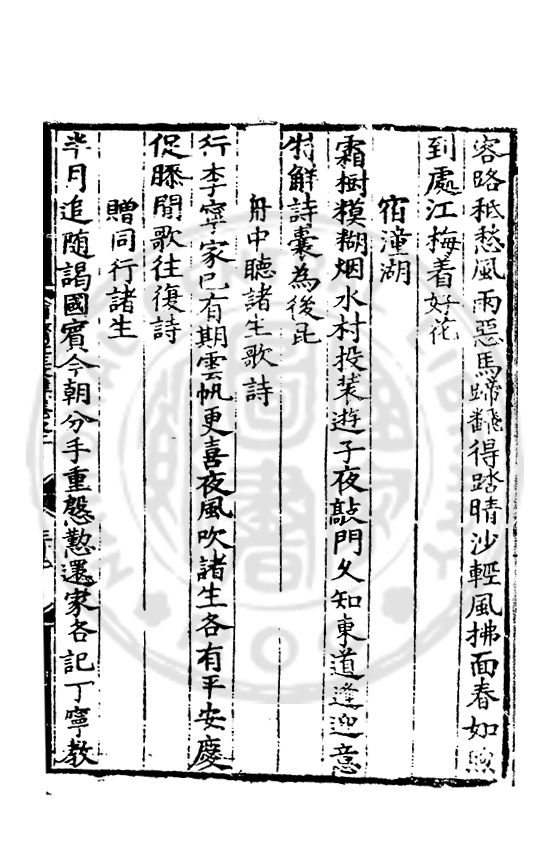 客路秪愁風雨惡馬蹄翻得踏晴沙輕風拂面春如煦
到處江梅着好花
宿潼湖
霜樹糢糊烟水村投装遊子夜敲門久知東道逢迎意
特解詩囊為後昆
舟中聽諸生歌詩
行李寧家已有期雲帆更喜夜風吹諸生各有平安慶
促膝閒歌往復詩
贈同行諸生
半月追随謁國賓今朝分手重慇懃還家各記丁寧教